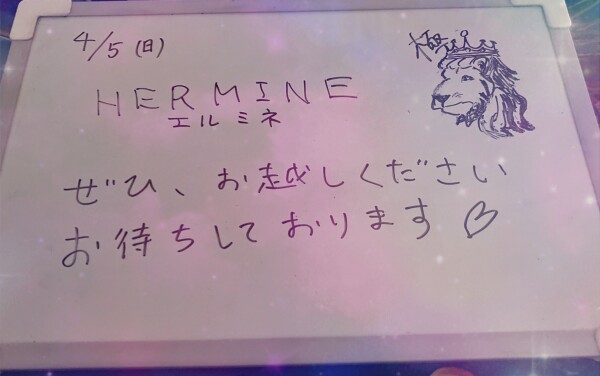 4/5(日)
HERMINE
エルミネ
ぜひ、お越しください
お待ちしております♡